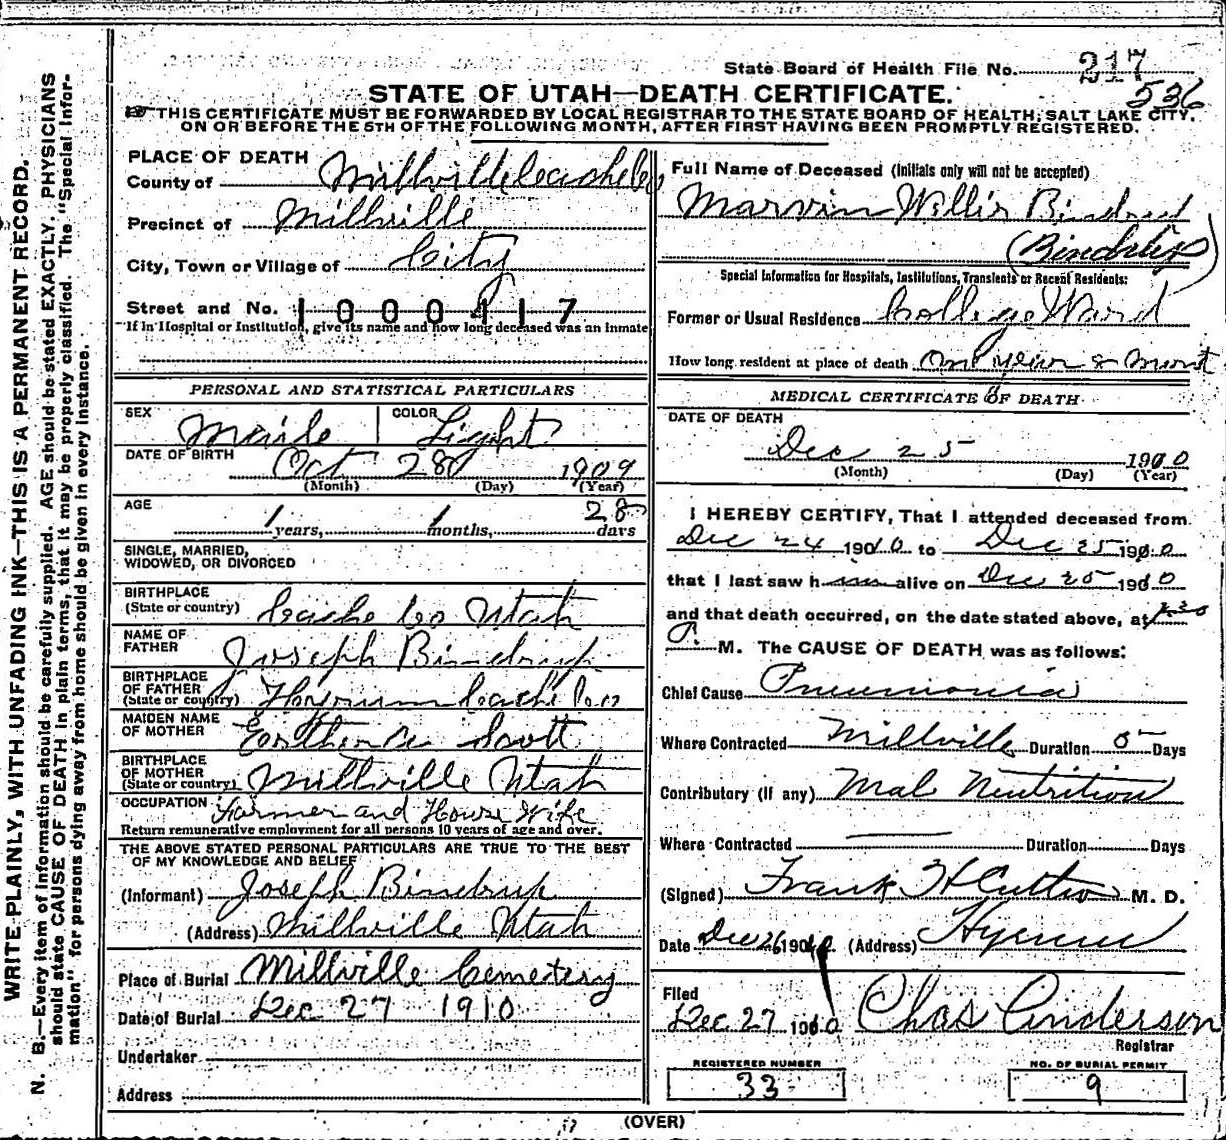 WRITE PLAINLY, WITH UNFADING INK—THIS IS A PERMANENT RECORD.
N. B.—Every item of information should be carefully supplied. AGE should be stated EXACTLY. PHYSICIANS
should state CAUSE OF DEATH in plain terms, that it may be properly classified. The "Special Infor-
mation" for persons dying away from home should be given in every instance.
State Board of Health File No. 217
536
STATE OF UTAH—DEATH CERTIFICATE.
THIS CERTIFICATE MUST BE FORWARDED BY LOCAL REGISTRAR TO THE STATE BOARD OF HEALTH, SALT LAKE CITY,
ON OR BEFORE THE 5TH OF THE FOLLOWING MONTH, AFTER FIRST HAVING BEEN PROMPTLY REGISTERED.
PLACE OF DEATH
County of Millville Cache Co
Precinct of Millville
City, Town or Village of City
Street and No. 1000417
If in Hospital or Institution, give its name and how long deceased was an inmate
PERSONAL AND STATISTICAL PARTICULARS
SEX Male COLOR Light
DATE OF BIRTH Oct 28 1909
(Month) (Day) (Year)
AGE
1 years, 1 months, 28 days
SINGLE, MARRIED,
WIDOWED, OR DIVORCED
BIRTHPLACE
(State or country) Cache Co Utah
NAME OF
FATHER Joseph Bindrup
BIRTHPLACE
OF FATHER
(State or country) Cache Co
MAIDEN NAME
OF MOTHER Scott
BIRTHPLACE
OF MOTHER
(State or country) Millville Utah
OCCUPATION Farmer and House Wife
Return remunerative employment for all persons 10 years of age and over.
THE ABOVE STATED PERSONAL PARTICULARS ARE TRUE TO THE BEST
OF MY KNOWLEDGE AND BELIEF
(Informant) Joseph Bindrup
(Address) Millville Utah
Place of Burial Millville Cemetery
Date of Burial Dec 27 1910
Undertaker
Address
Full Name of Deceased (Initials only will not be accepted)
Marvin Willis Bindrup
Special Information for Hospitals, Institutions, Transients or Recent Residents:
Former or Usual Residence College Ward
How long resident at place of death One year & mont
MEDICAL CERTIFICATE OF DEATH
DATE OF DEATH
Dec 25 1910
(Month) (Day) (Year)
I HEREBY CERTIFY, That I attended deceased from
Dec 24 1910 to Dec 25 1910
that I last saw him alive on Dec 25 1910
and that death occurred, on the date stated above, at
P. M. The CAUSE OF DEATH was as follows:
Chief Cause Pneumonia
Where Contracted Millville Duration 5 Days
Contributory (If any) Mal Neutrition
Where Contracted Duration Days
(Signed) Frank H M. D.
Date Dec 26 1910. (Address) Hyrum
Filed
Dec 27 1910 Chas Anderson
Registrar
REGISTERED NUMBER
33
NO. OF BURIAL PERMIT
9
(OVER)